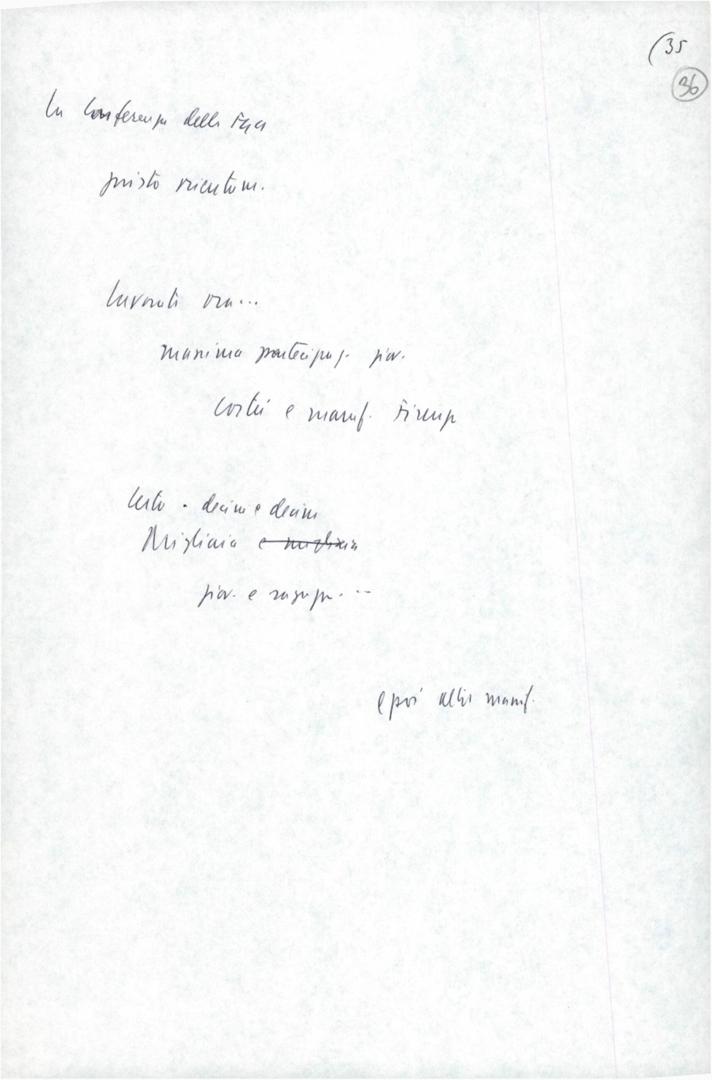 (35
36
La Conferenza della FGCI
giusto orientam.
Lavorate ora...
massima partecipaz. giov.
e manif. Firenze
decine e decine
Migliaia e migliaia
giov. e ragazze...
e poi altre manif.